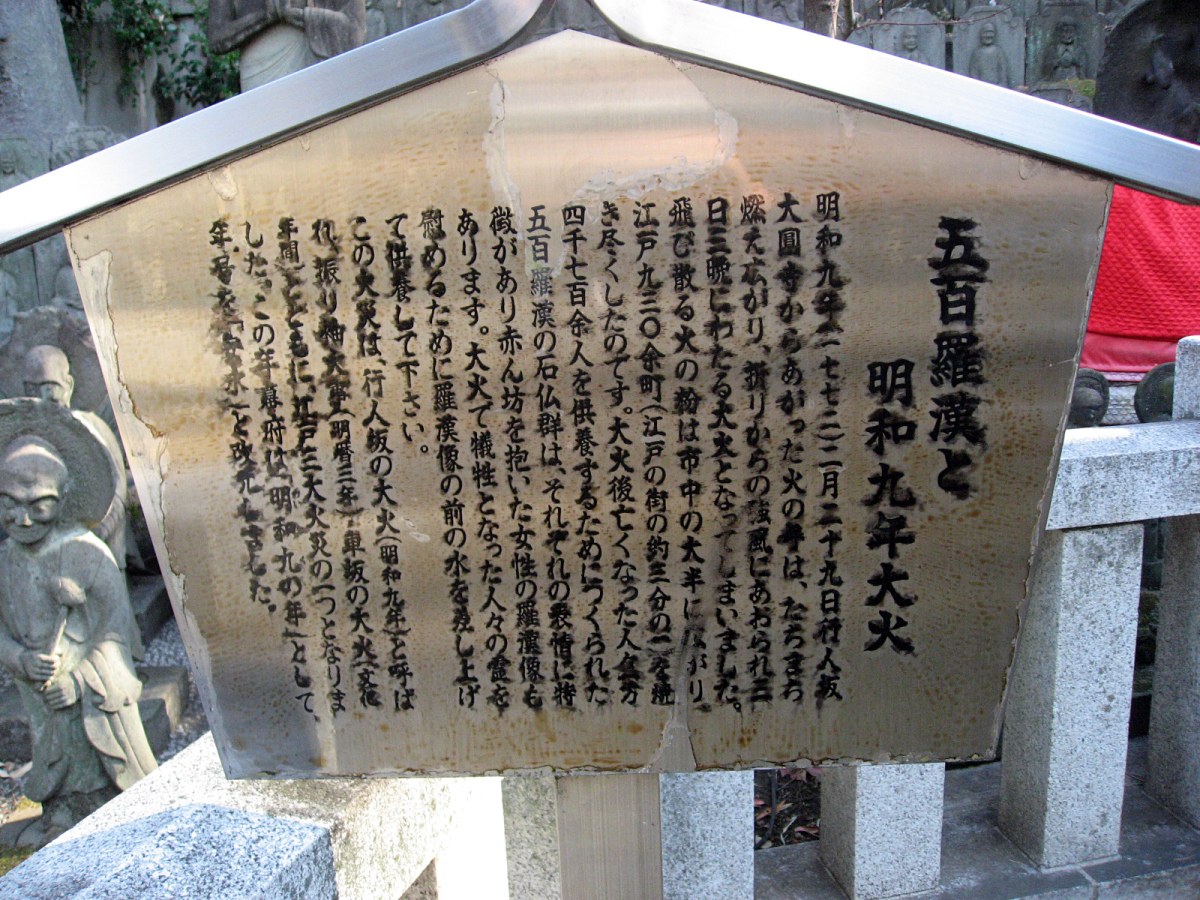 五百羅漢と
明和九年大火
明和九年（一七七二）二月二十九日行人坂
大圓寺からあがった火の手は、たちまち
燃え広がり、折りからの強風にあおられ二
日三晩にわたる大火となってしまいました。
飛び散る火の粉は市中の大半に広がり、
江戸九三〇余町（江戸の街の約三分の一）を焼
き尽くしたのです。大火後亡くなった人一万
四千七百余人を供養するためにつくられた
五百羅漢の石仏群は、それぞれの表情に特
徴があり赤ん坊を抱いた女性の羅漢像も
あります。大火で犠牲となった人々の霊を
慰めるために羅漢像の前の水を差し上げ
て供養して下さい。
この火災は、行人坂の大火（明和九年）と呼ば
れ、振り袖大火（明暦三年）、車坂の大火（文化
年間）とともに、江戸三大火災の一つとなりま
した。この年幕府は「明和九の年」として、
年号を「安永」と改元しました。